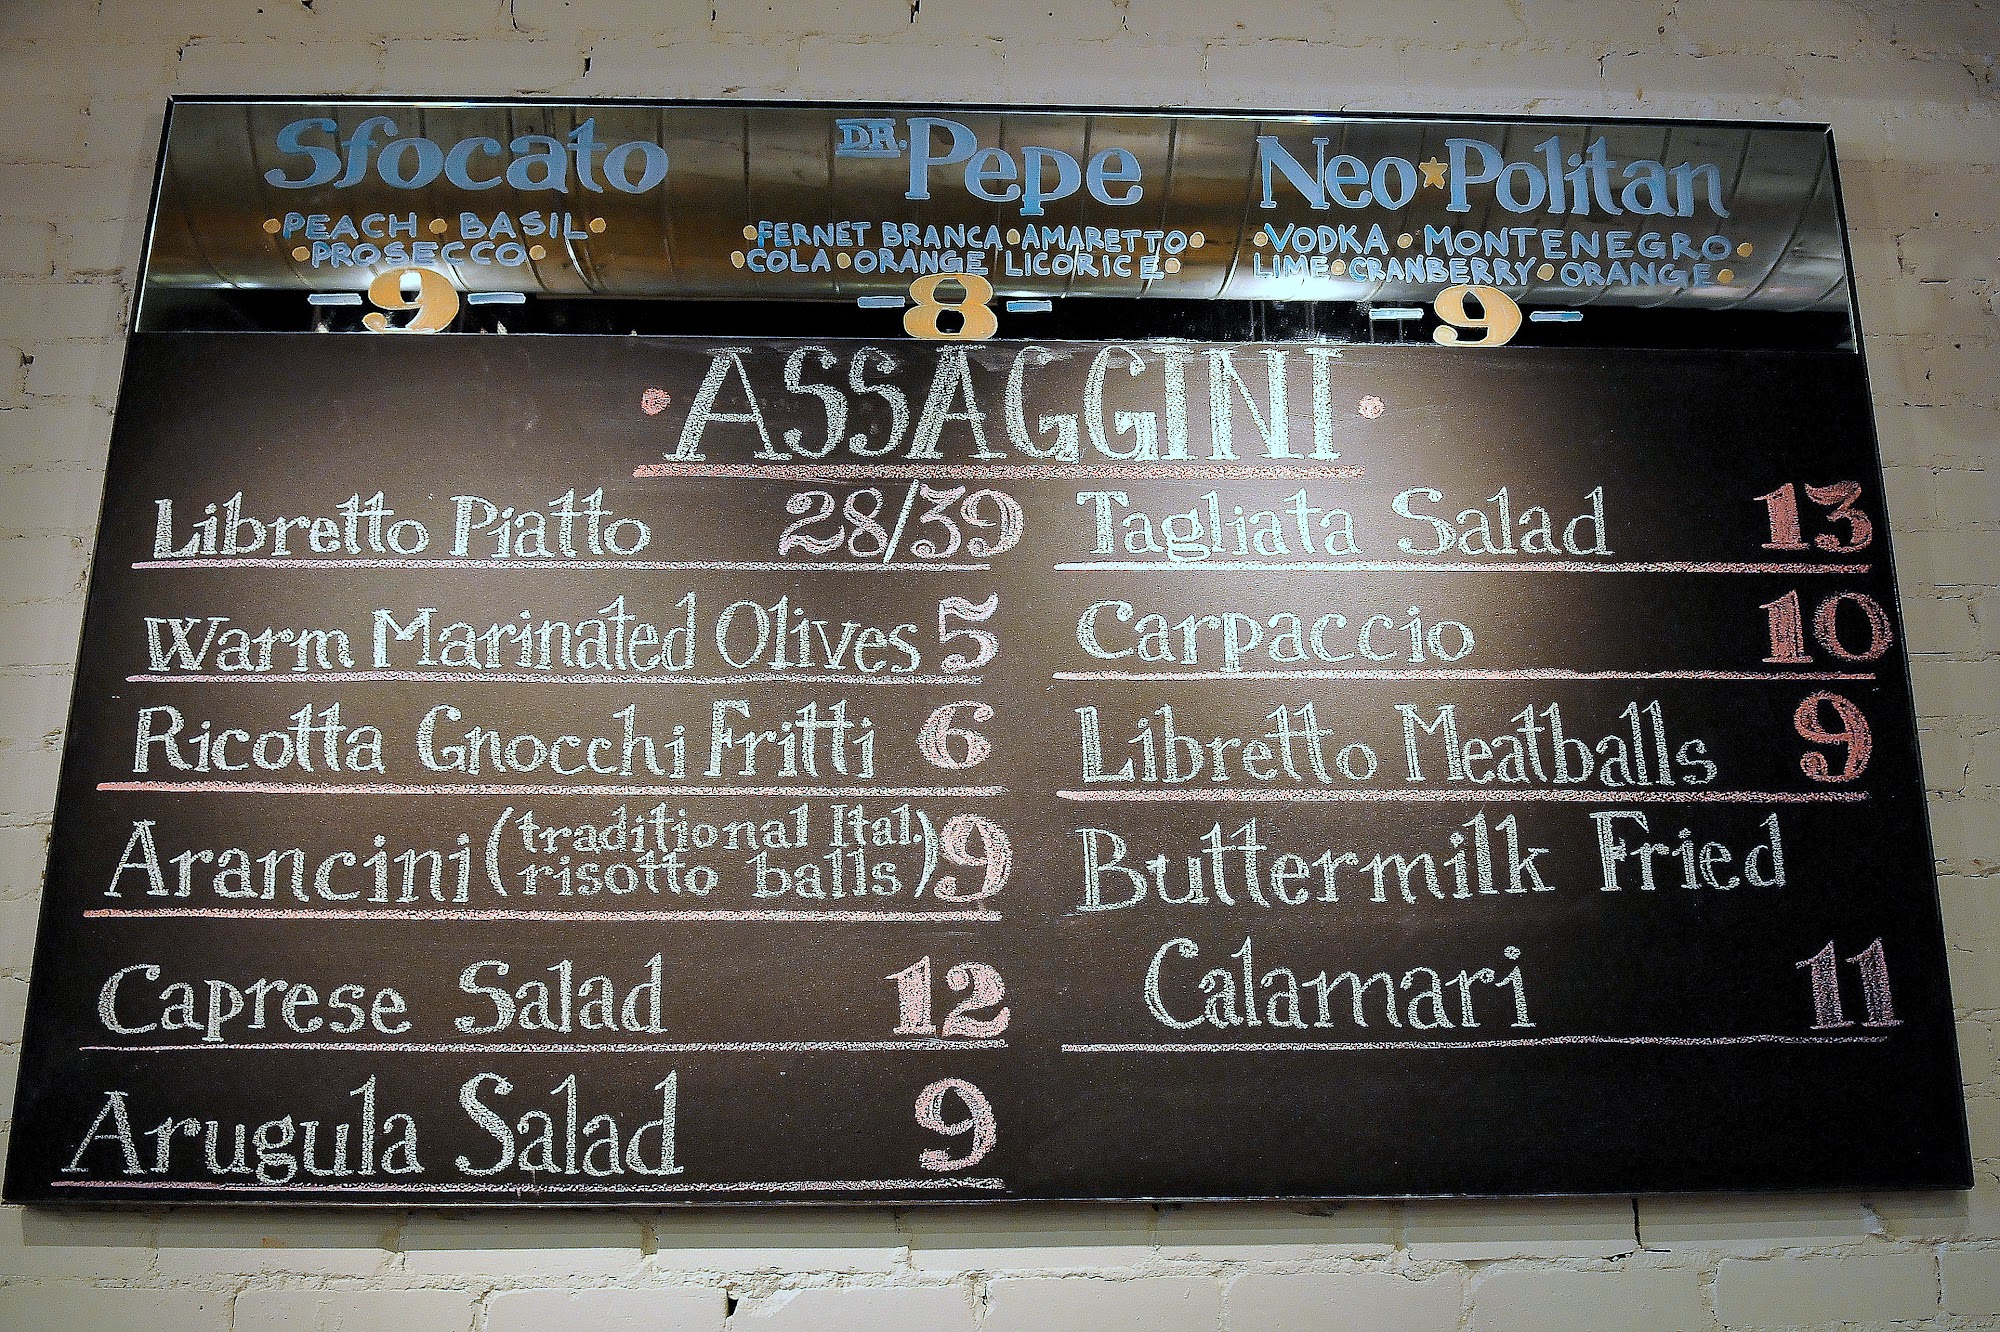 Sfocato
PEACH • BASIL
PROSECCO
-9-
DR. Pepe
FERNET BRANCA • AMARETTO
COLA • ORANGE LICORICE
-8-
Neo★Politan
VODKA • MONTENEGRO
LIME • CRANBERRY • ORANGE
-9-
• ASSAGGINI •
Libretto Piatto 28/39
Warm Marinated Olives 5
Ricotta Gnocchi Fritti 6
Arancini (traditional Ital. risotto balls) 9
Caprese Salad 12
Arugula Salad 9
Tagliata Salad 13
Carpaccio 10
Libretto Meatballs 9
Buttermilk Fried
Calamari 11